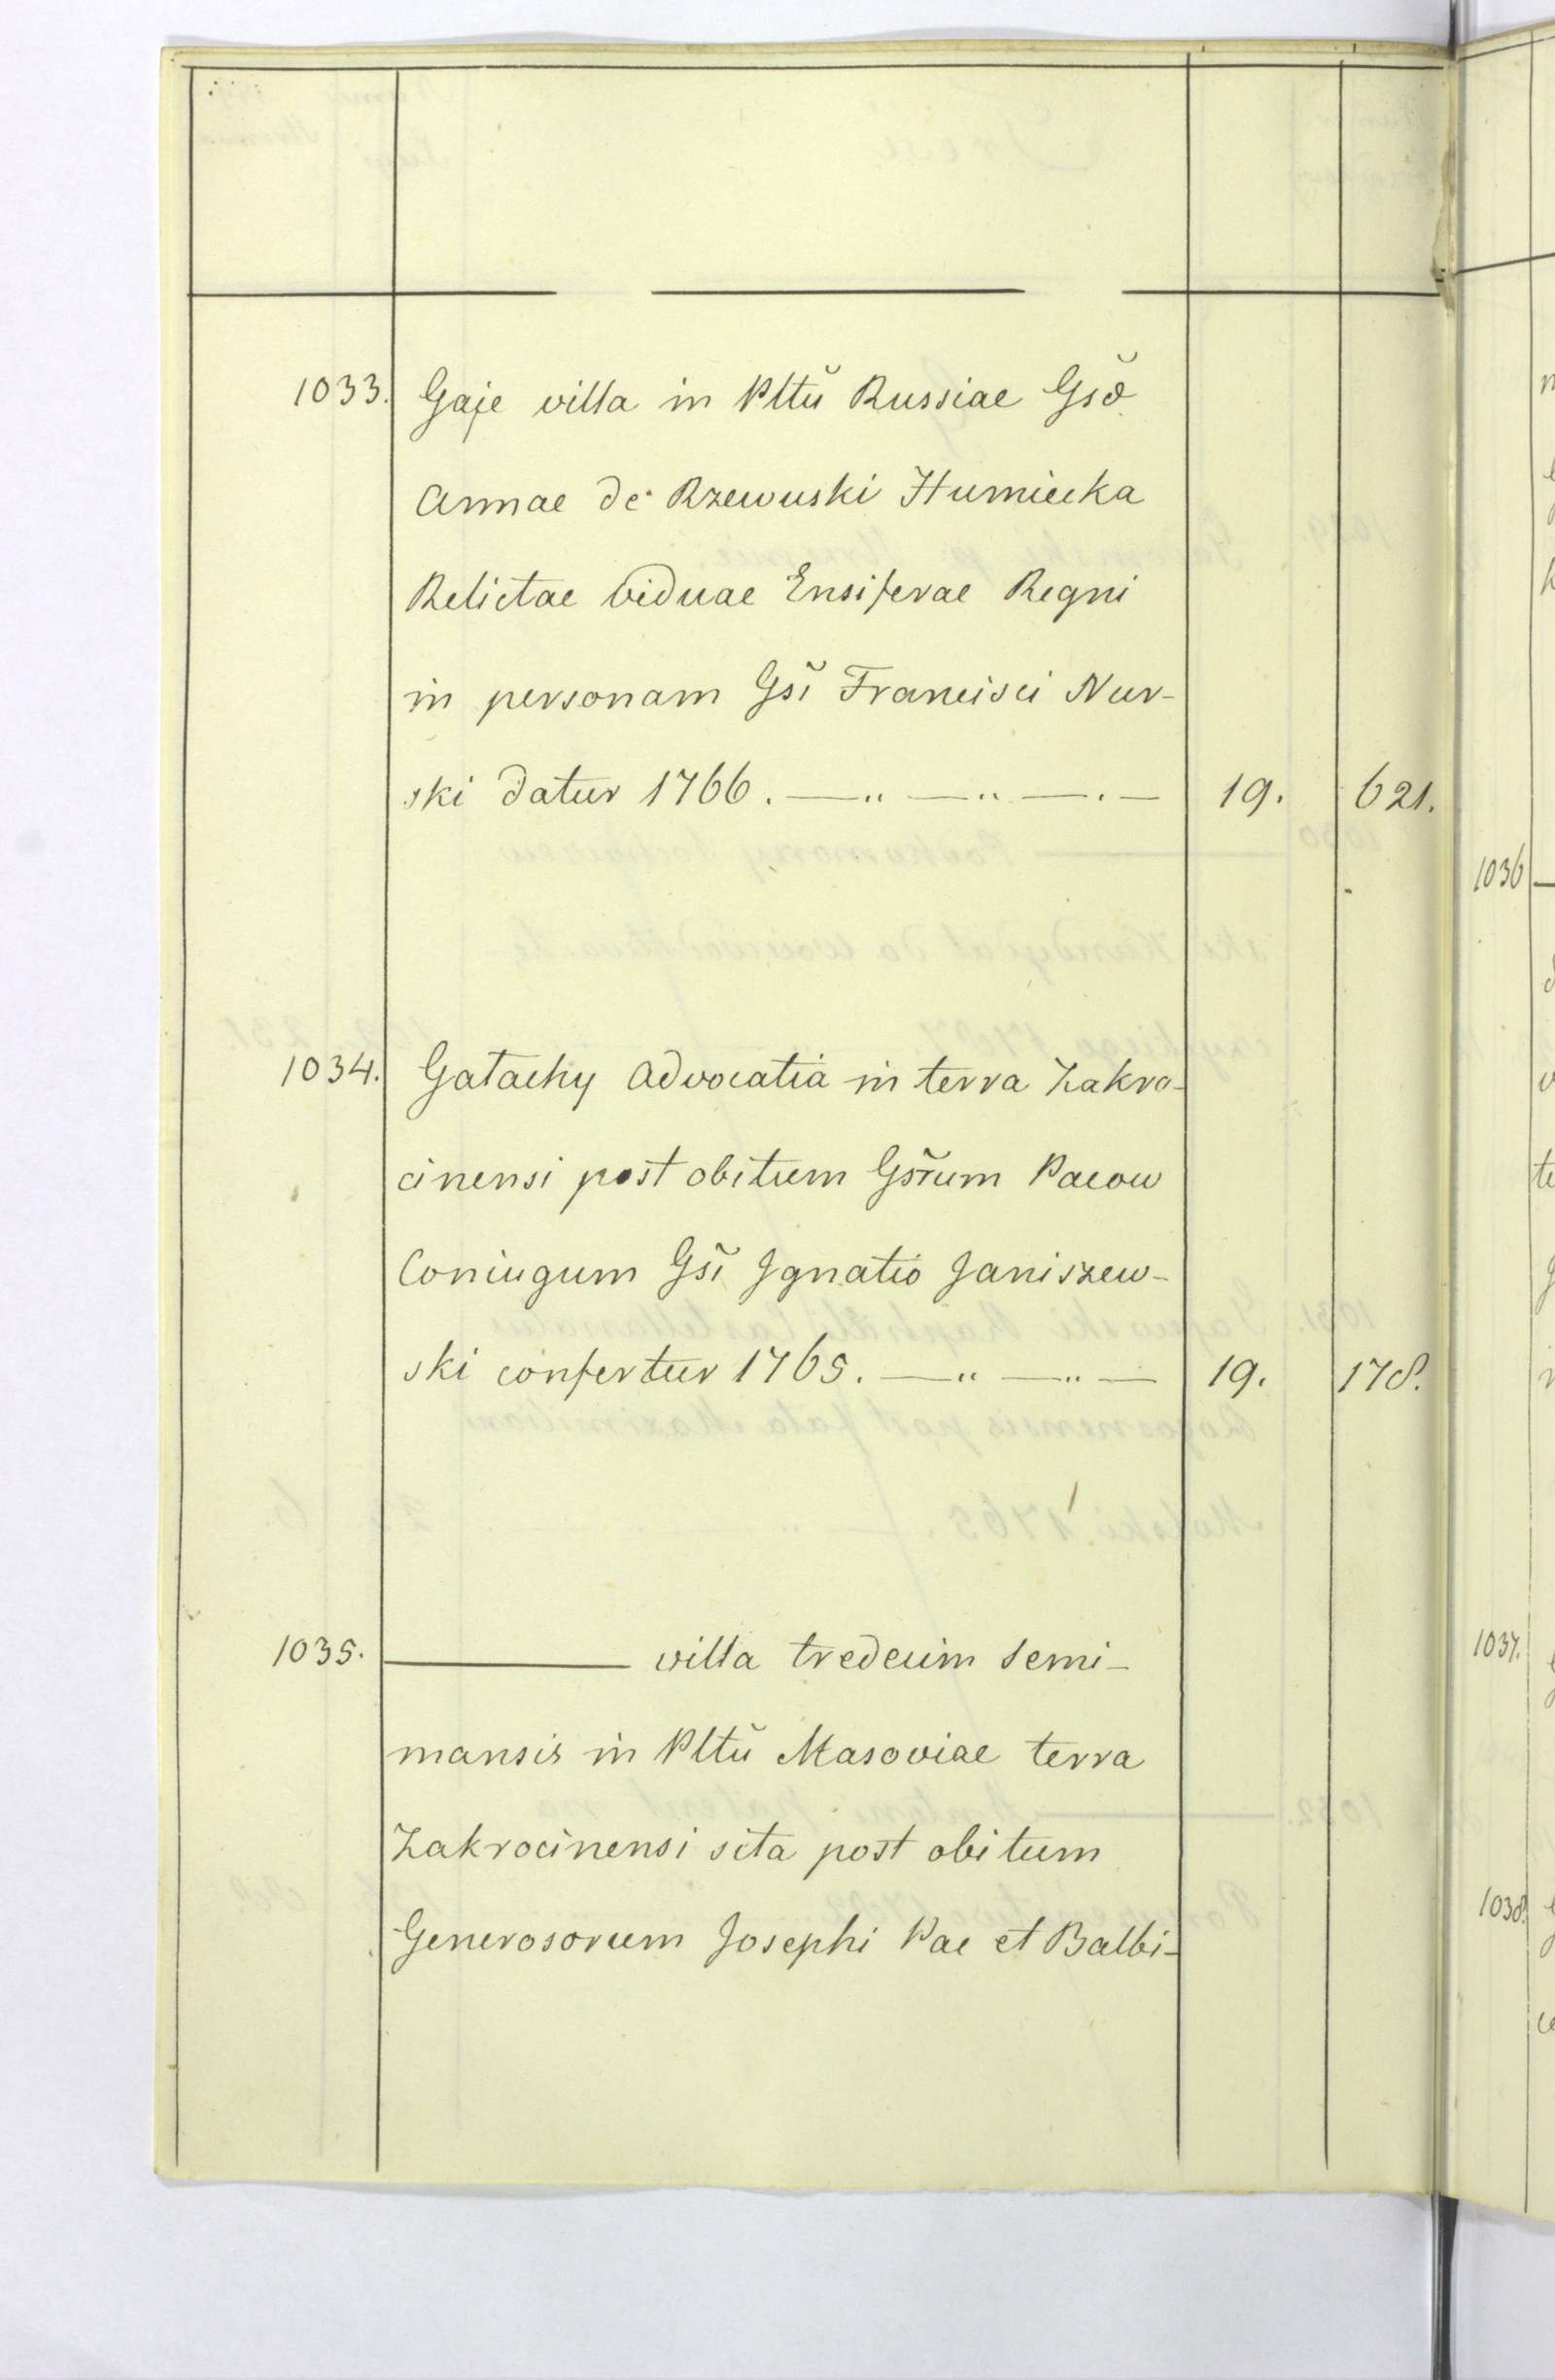 1033. Gaje villa in Plttŭ Russiae Gsď
Annae de Rzewuski Humiecka
Relictae viduae Ensiferae Regni
in personam Gsĩ Francisci Nur-
ski datur 1766. —„ —„ —.— 19. 621.
1034. Gatachy advocatia in terra Zakro-
cinensi post obitum Gsr̃um Pacow
Coniugum Gsĩ Ignatio Janiszew-
ski confertur 1765. —„ —„ — 19. 178.
1035. ——— villa tredecim semi-
mansis in Pltŭ Masoviae terra
Zakrocinensi sita post obitum
Generosorum Josephi Pac et Balbi-
1036
1037.
1038.